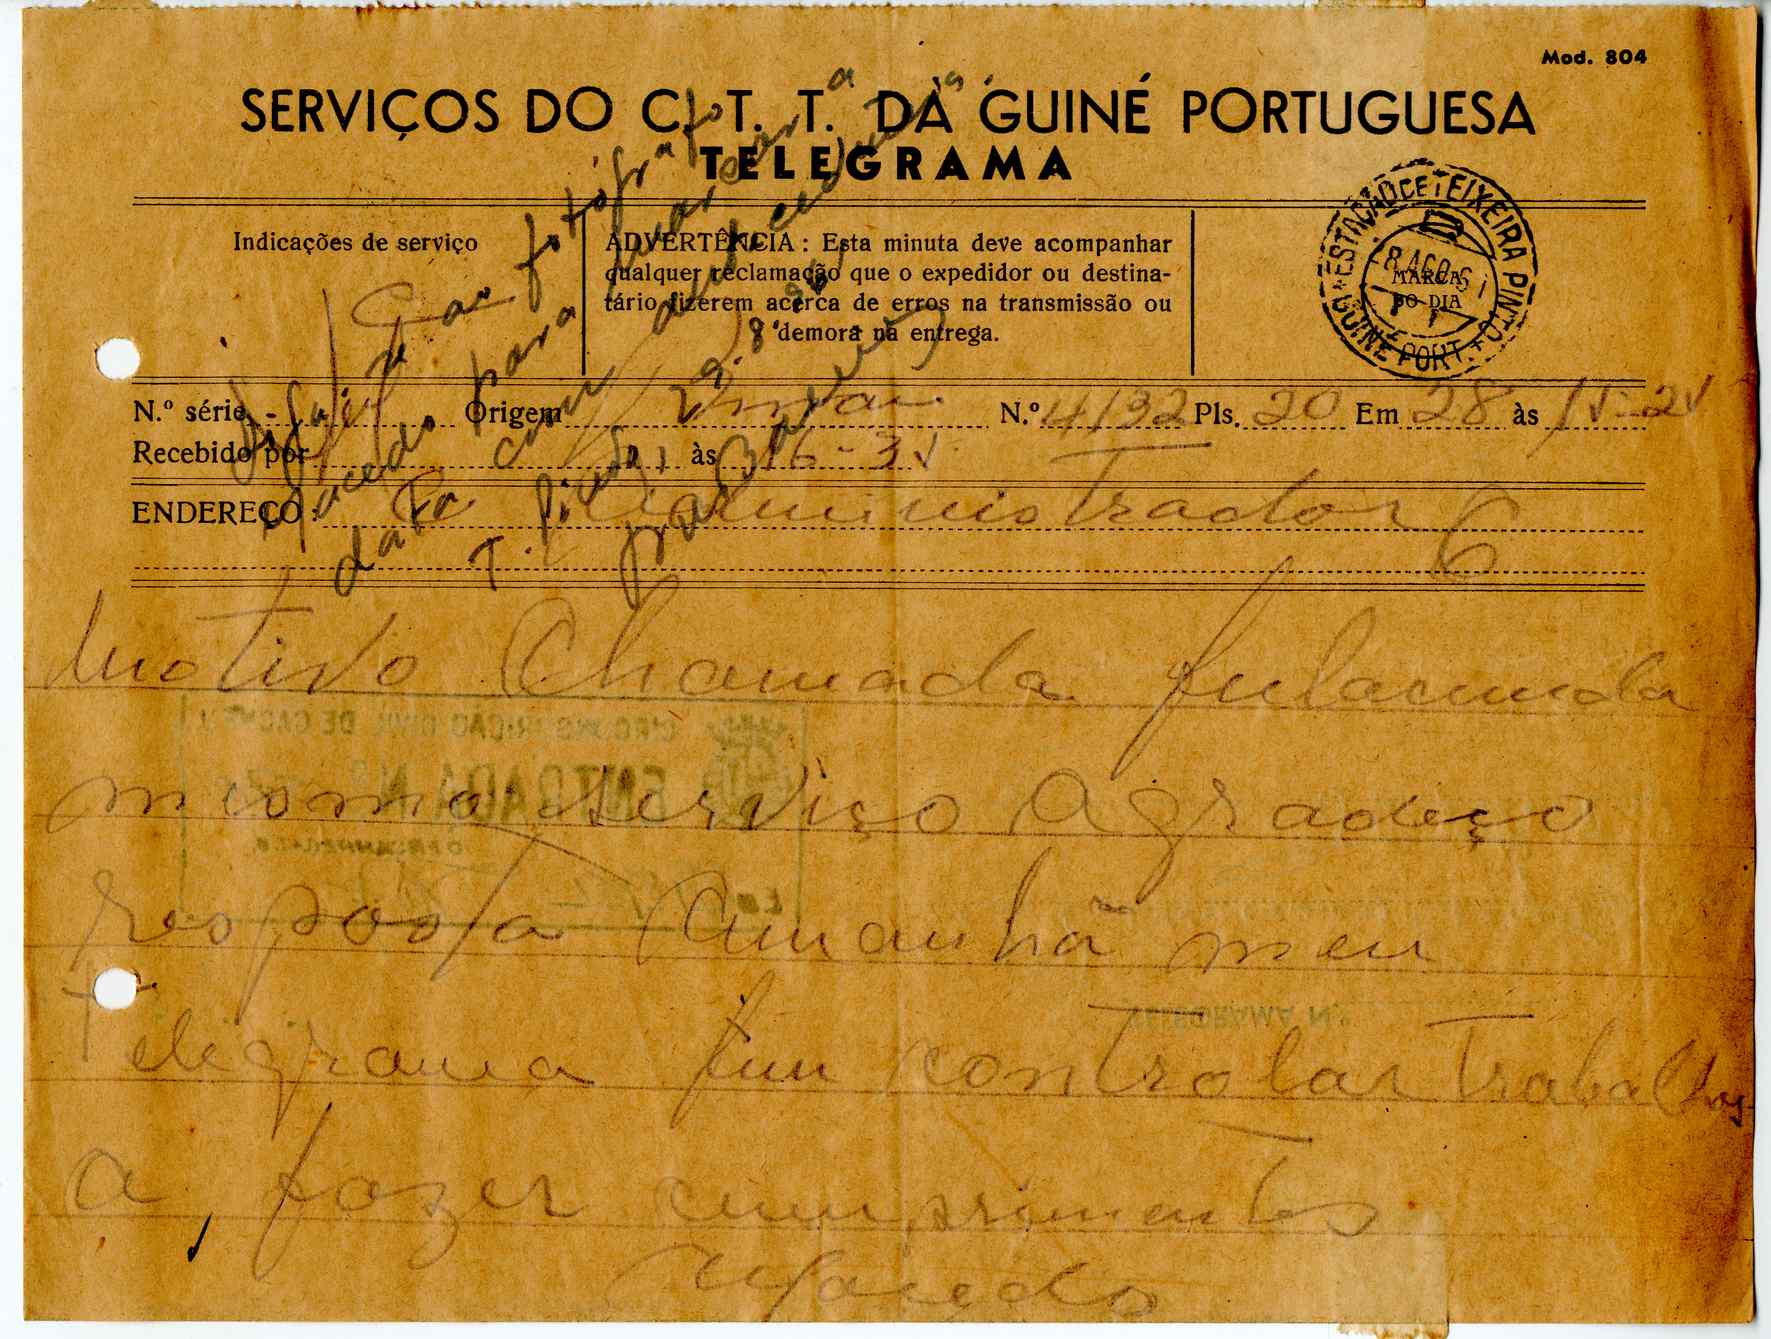 Mod. 804
SERVIÇOS DO C. T. T. DA GUINÉ PORTUGUESA
TELEGRAMA
Indicações de serviço
ADVERTÊNCIA : Esta minuta deve acompanhar
qualquer reclamação que o expedidor ou destina-
tário fizerem acerca de erros na transmissão ou
demora na entrega.
ESTAÇÃO CTT TEIXEIRA PINTO
GUINÉ PORT.
MARCA
DO DIA
ao fotógrafo
Macedo para marcar a
data com antecedência
T. Pinto, 29.8.
N.º série - Origem Bissau N.º 4132 Pls. 20 Em 28 às
Recebido por às 16-3
ENDEREÇO: Administrador
Motivo Chamada fulacunda
mesmo serviço Agradeço
resposta Amanhã meu
telegrama fim controlar trabalhos
a fazer cumprimentos
Macedo
CIRCUNSCRIÇÃO CIVIL DE CACHEU
ENTRADA N.º
TELEGRAMA N.º